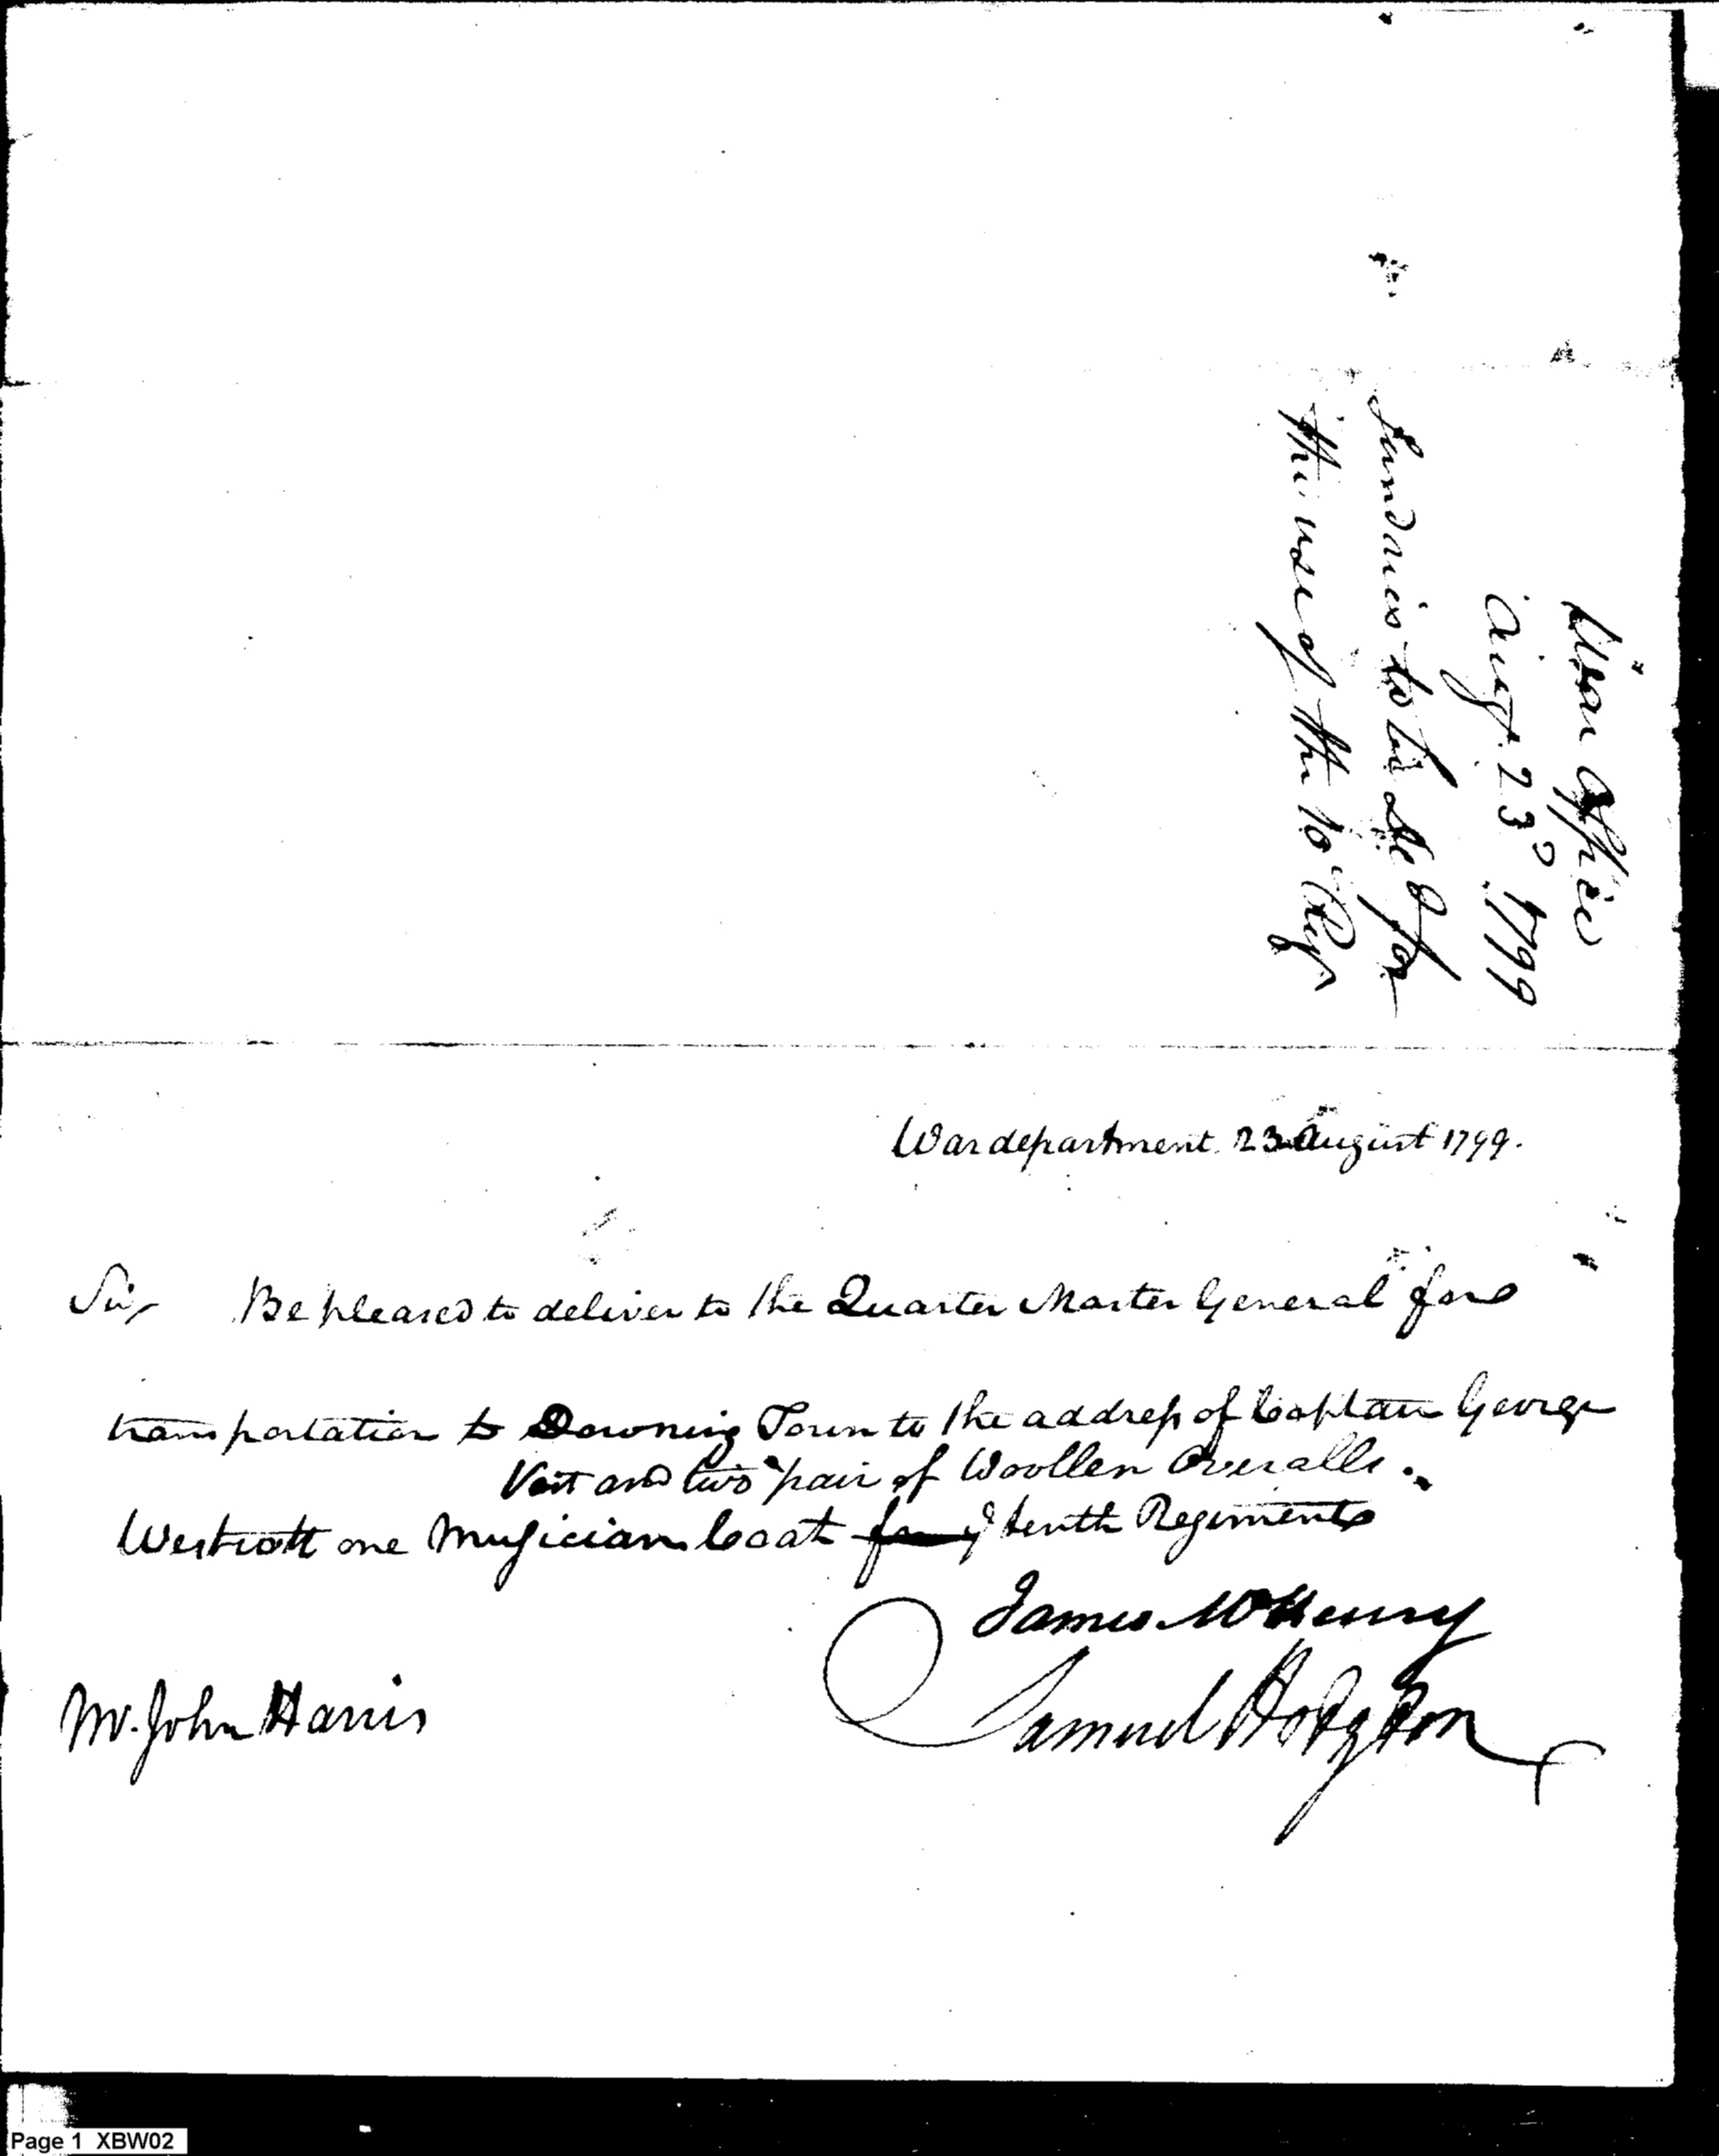 War Office
Augt. 23d 1799
Sundries to be Se d for
the use of the 10 Regt
War department. 23 August 1799.
Sir Be pleased to deliver to the Quarter Master General for
transportation to Downing Town to the address of Captain George
Vest and two pair of Woollen Overalls.
Westcott one Musician Coat for ye tenth Regiment
James McHenry
Samuel Hodgdon
Mr. John Harris
Page 1 XBW02